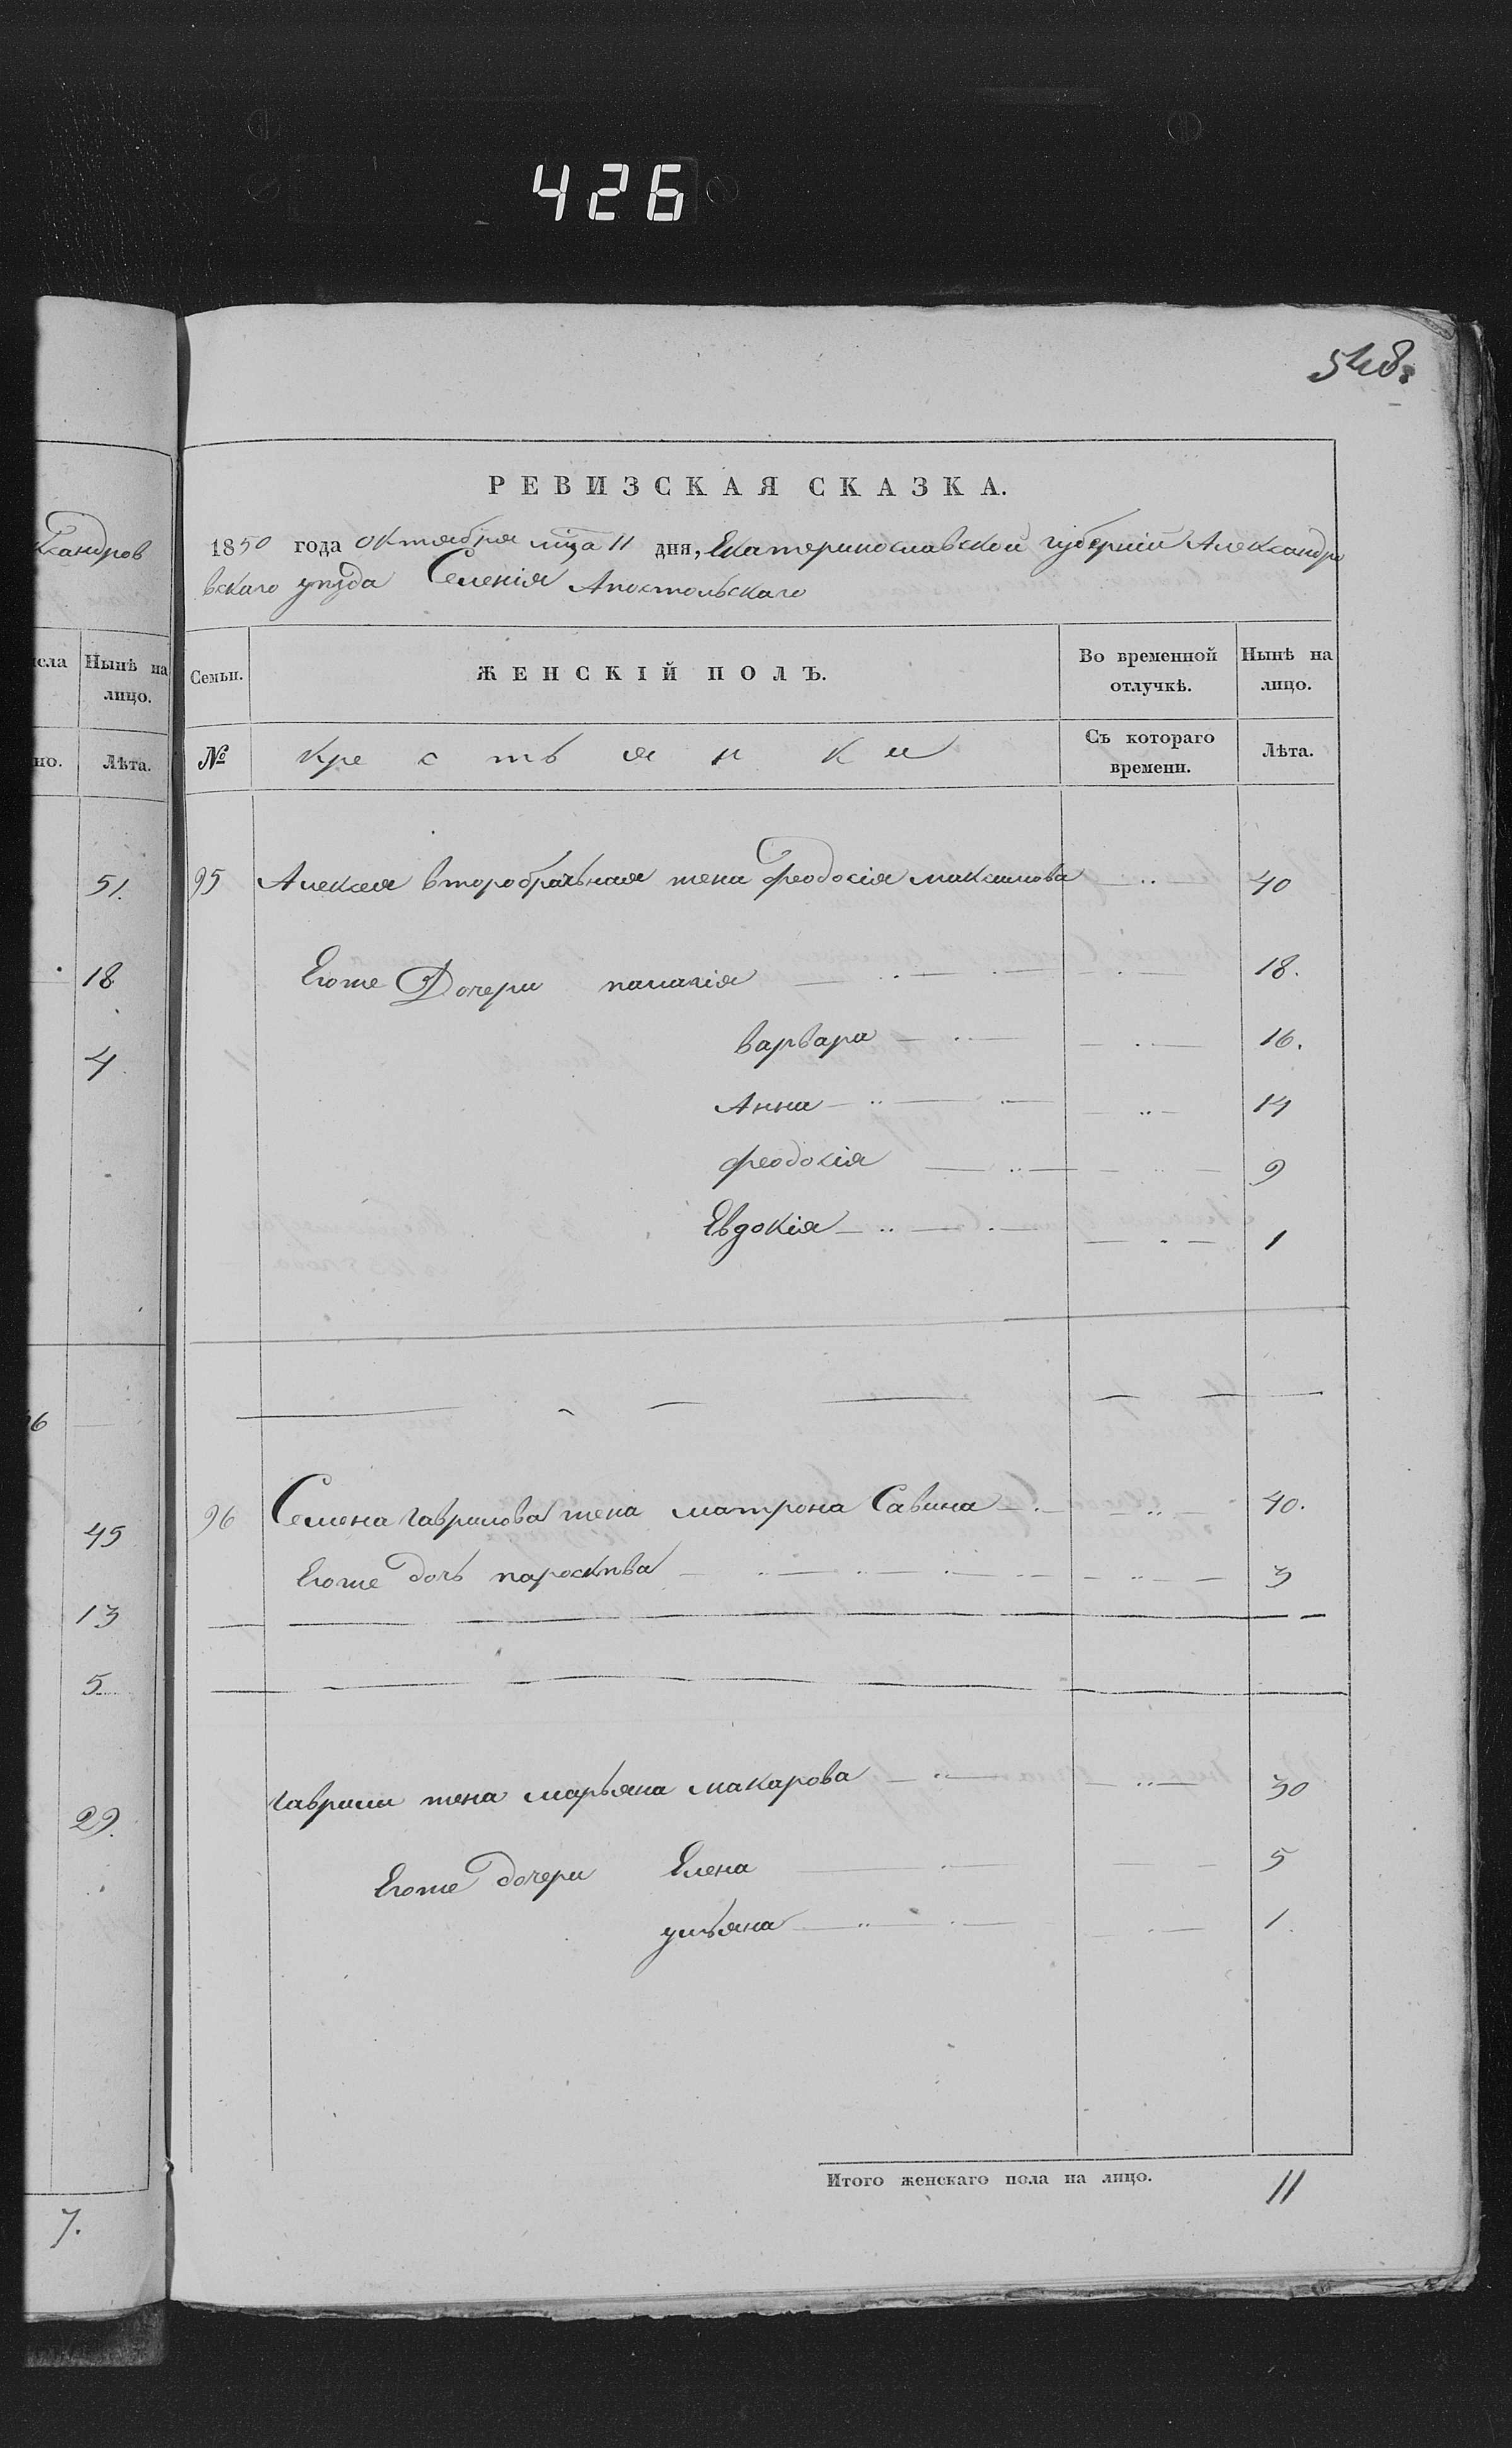 426
548.
ксандров
исла Нынѣ на
лицо.
но. Лѣта.
51.
18
4
6
45
13
5
29.
7.
РЕВИЗСКАЯ СКАЗКА.
1850 года Октября мца 11 дня, Екатеринославской губерніи Александро
вскаго уѣзда Селенія Апостольскаго
Семьи. ЖЕНСКІЙ ПОЛЪ. Во временной отлучкѣ. Нынѣ на лицо.
№ Крестьянки Съ котораго времени. Лѣта.
95 Алексея второбрачьная жена Феодосія Максимова 40
Егоже Дочери пилагія 18.
варвара 16.
Анна 14
феодосія 9
Евдокія 1
96 Семена Гаврилова жена матрона Савина 40.
Егоже дочь пароскѣва 3
Гаврили жена марьяна макарова 30
Егоже дочери Елена 5
ульяна 1
Итого женскаго пола на лицо. 11